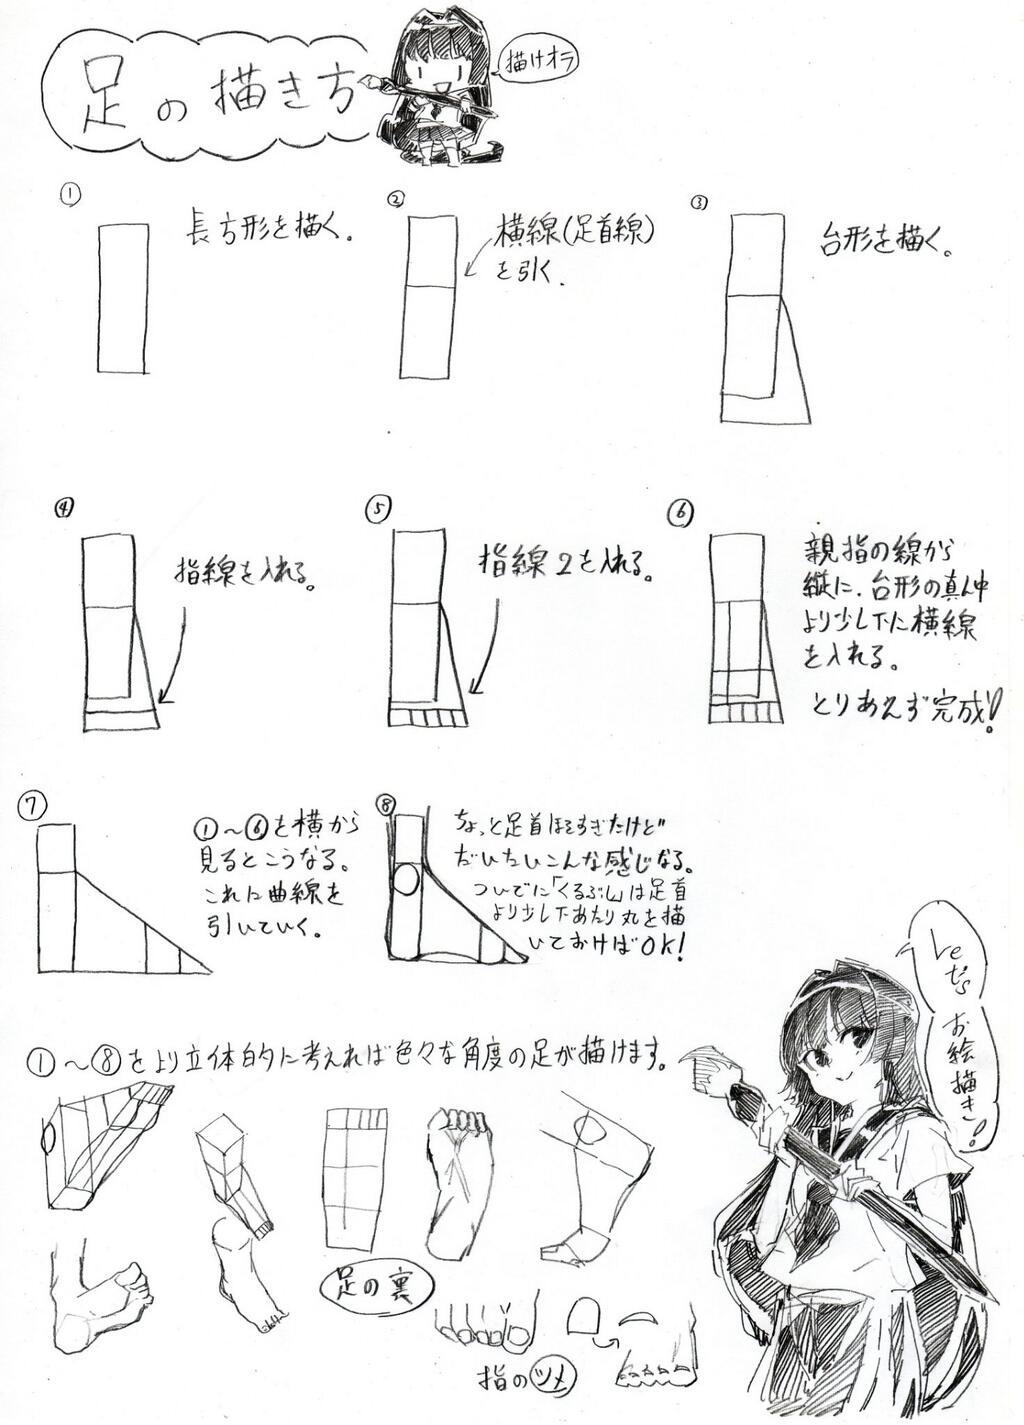 足の描き方
描けオラ
①
長方形を描く。
②
横線(足首線)
を引く.
③
台形を描く。
④
指線を入れる。
⑤
指線2を入れる。
⑥
親指の線から
縦に、台形の真ん中
より少し下に横線
を入れる。
とりあえず完成!
⑦
①~⑥を横から
見るとこうなる。
これに曲線を
引いていく。
⑧
ちょっと足首ほそすぎたけど
だいたいこんな感じなる。
ついでに「くるぶし」は足首
より少し下あたり丸を描
いておけばOK!
Let's
お絵描き!
①~⑧をより立体的に考えれば色々な角度の足が描けます。
足の裏
指のツメ